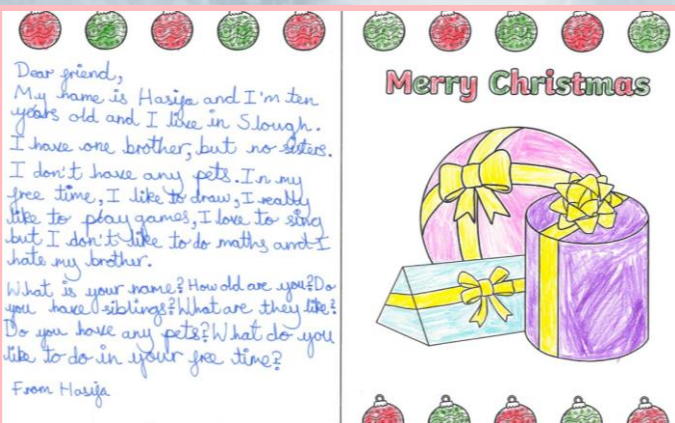 Dear friend,
My name is Hasija and I'm ten
years old and I live in Slough.
I have one brother, but no sisters.
I don't have any pets. In my
free time, I like to draw, I really
like to play games, I love to sing
but I don't like to do maths and I
hate my brother.
What is your name? How old are you? Do
you have siblings? What are they like?
Do you have any pets? What do you
like to do in your free time?
From Hasija
Merry Christmas